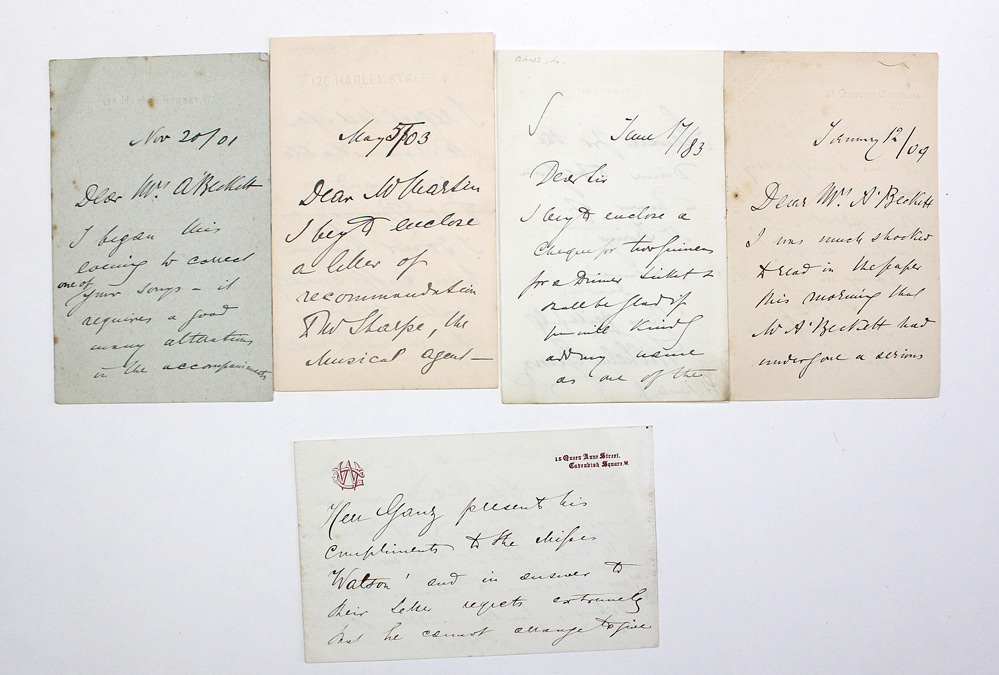 Nov 20/01
Dear Mrs A'Beckett
I began this
evening to correct
one of
your songs – it
requires a good
many alterations
in the accompaniments
126 HARLEY STREET W
May 5/03
Dear Mr Martin
I beg to enclose
a letter of
recommandation
to Mr Sharpe, the
musical agent –
GANZ
June 17/83
Dear Sir
I beg to enclose a
cheque for two guineas
for a Dinner ticket &
shall be glad if
you will kindly
add my name
as one of the
January 12/09
Dear Mrs A'Beckett
I was much shocked
to read in the paper
this morning that
Mr A'Beckett had
undergone a serious
15 Queen Anne Street,
Cavendish Square. W.
Herr Ganz present his
compliments to the Misses
Watson' and in answer to
their letter regrets extremely
that he cannot arrange to give